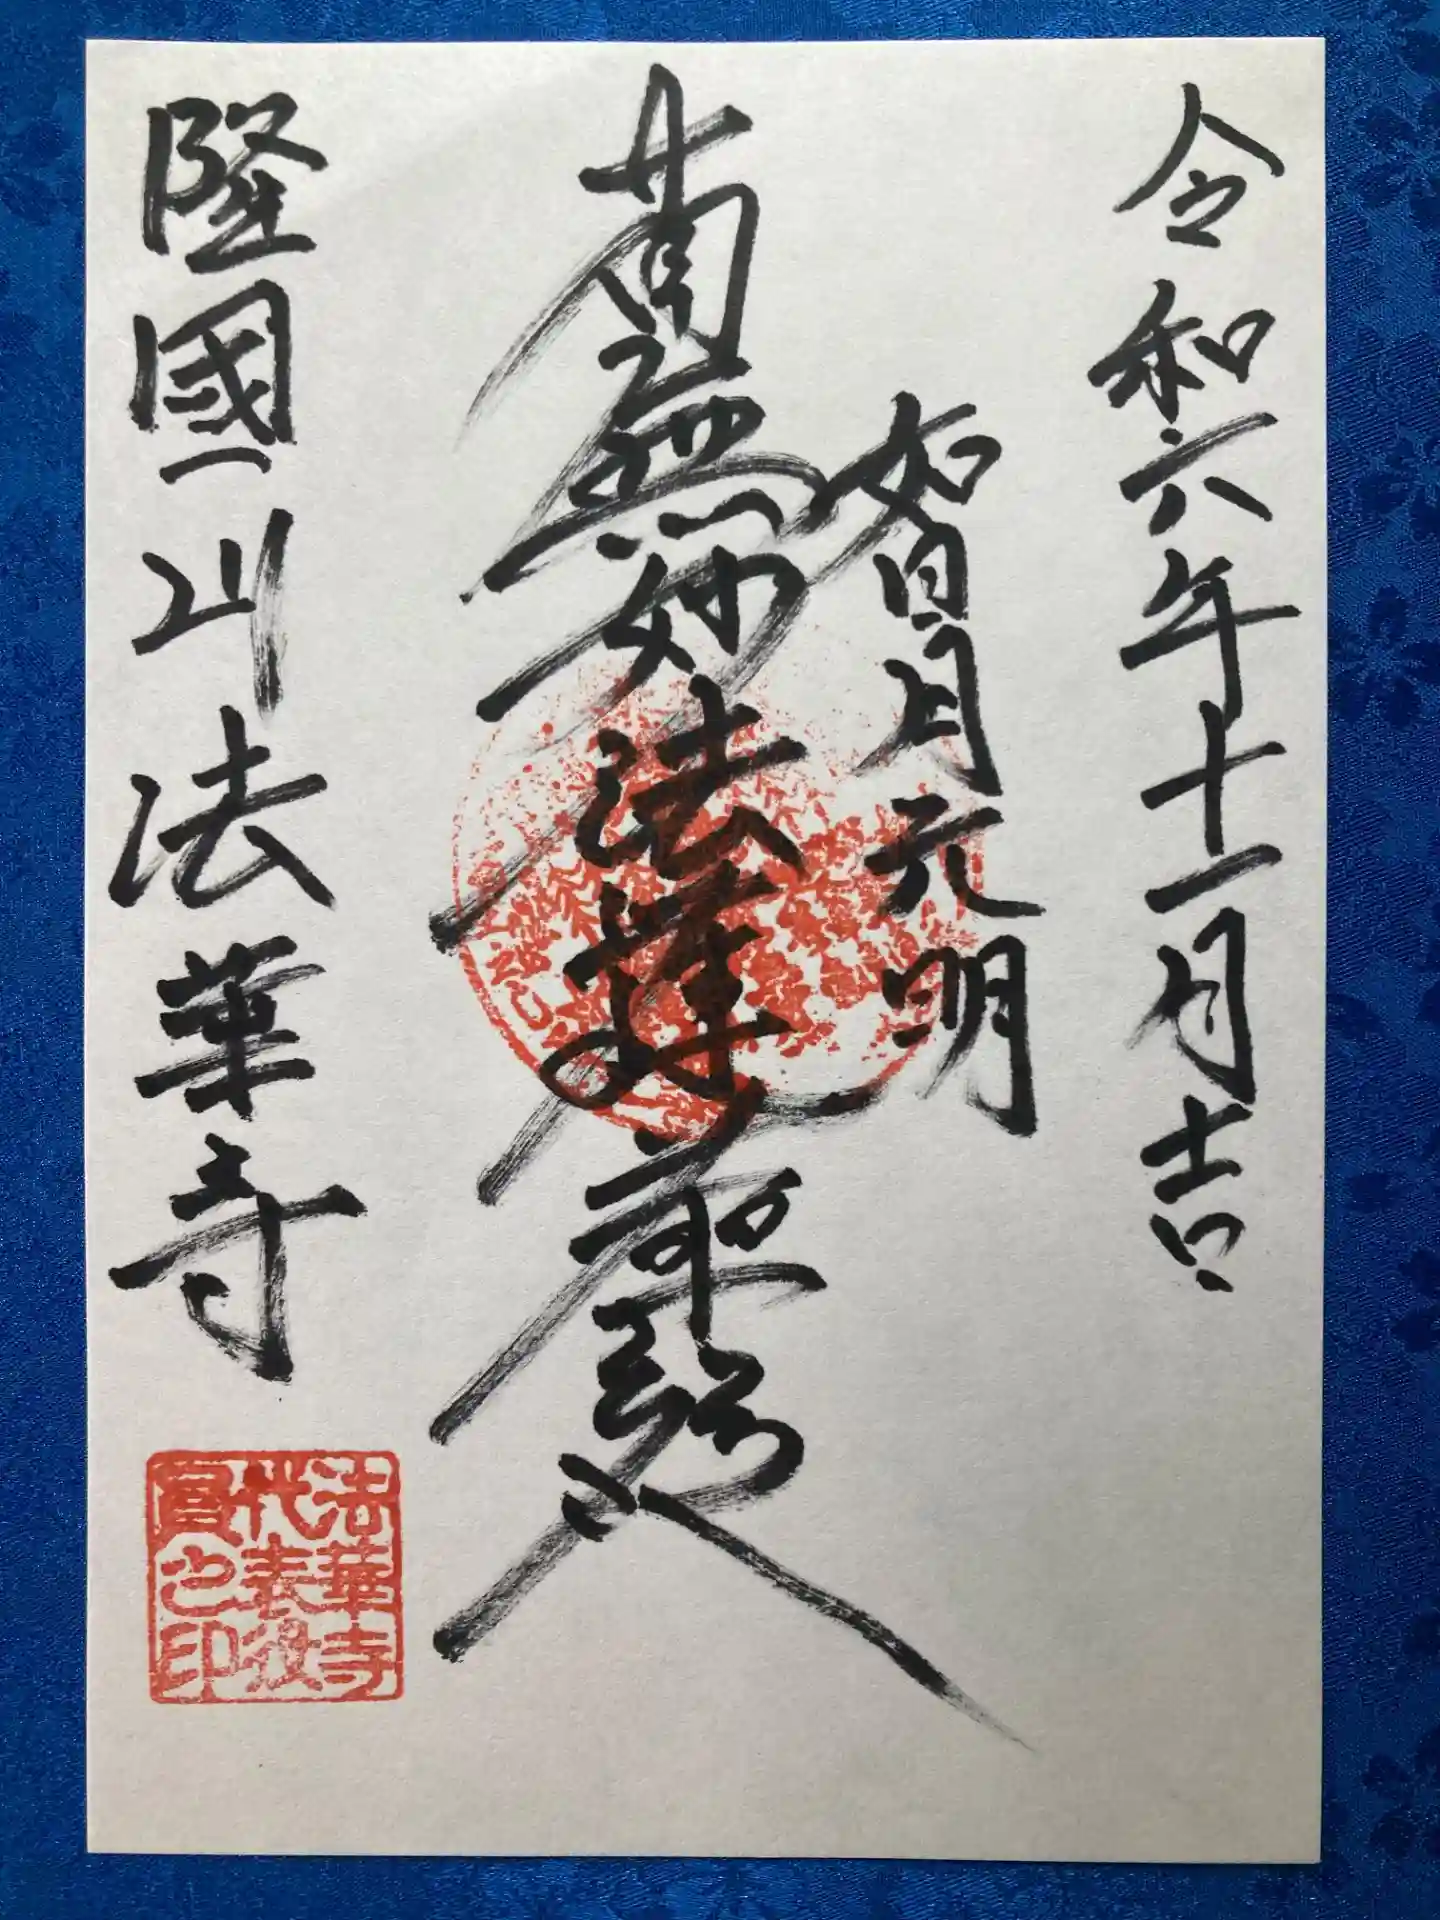 令和六年十一月吉日
如日月光明
南無妙法蓮華経
隆國山法華寺
法華寺
代表役
員之印